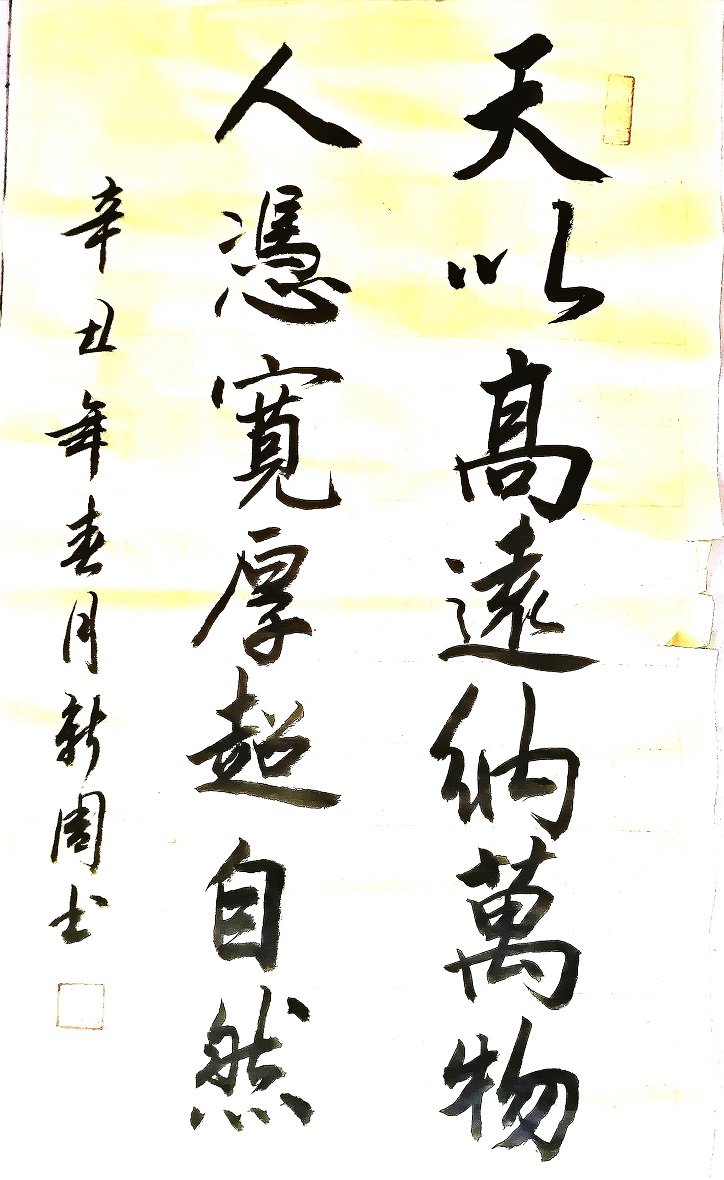 天以高遠納萬物
人憑寬厚超自然
辛丑年春月新周书